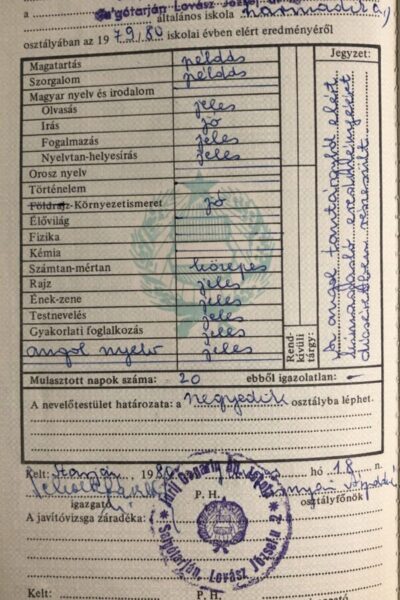 a Salgótarján Lovász József általános iskola harmadik
osztályában az 1979/80 iskolai évben elért eredményéről
Magatartás példás
Szorgalom példás
Magyar nyelv és irodalom
Olvasás jeles
Írás jó
Fogalmazás jeles
Nyelvtan-helyesírás jeles
Orosz nyelv
Történelem
Földrajz-Környezetismeret jó
Élővilág
Fizika
Kémia
Számtan-mértan közepes
Rajz jeles
Ének-zene jeles
Testnevelés jeles
Gyakorlati foglalkozás jeles
angol nyelv jeles
Rendkívüli tárgy:
Jegyzet:
Az angol tantárgyból elért
eredményéért
dicséretben részesült.
Mulasztott napok száma: 20 ebből igazolatlan: –
A nevelőtestület határozata: a negyedik osztályba léphet.
Kelt: 1980 hó 18. n.
igazgató P. H. osztályfőnök
Jurij Gagarin Ált. Iskola
Salgótarján, Lovász József u. 2.
A javítóvizsga záradéka:
Kelt: P. H.